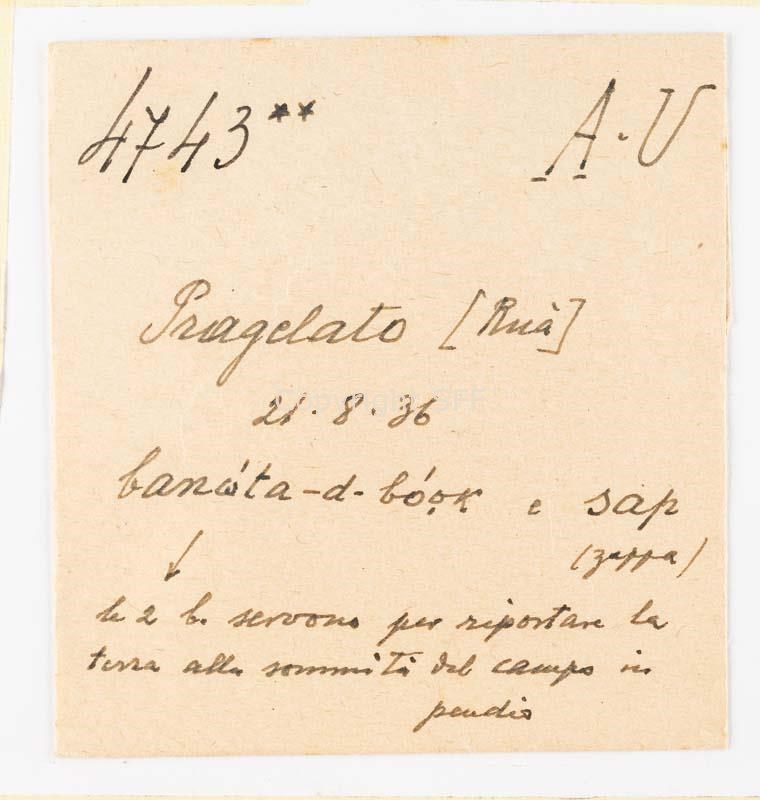 4743** A.U
Pragelato [Ruà]
21.8.36
banáta-d-bóọk e sap
(zappa)
le 2 b. servono per riportare la
terra alla sommità del campo in
pendio